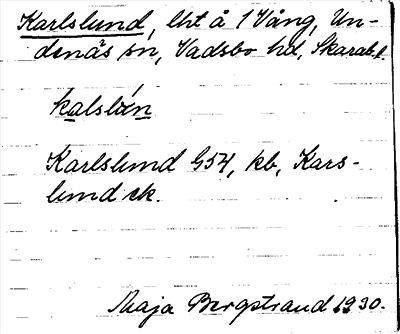 Karlslund, lht å 1 Vång, Un-
denäs sn, Vadsbo hd, Skarab. l.
kalslún
Karlslund G54, kb, Kars-
lund ek.
Maja Bergstrand 1930.